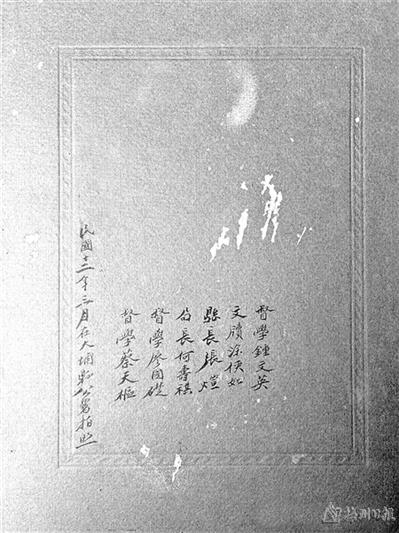 督學鍾文英
文牘涂侯如
縣長張愷
局長何壽祺
督學廖國礎
督學蔡天樞
民國廿二年三月在大埔縣公署拍照
梅州日报